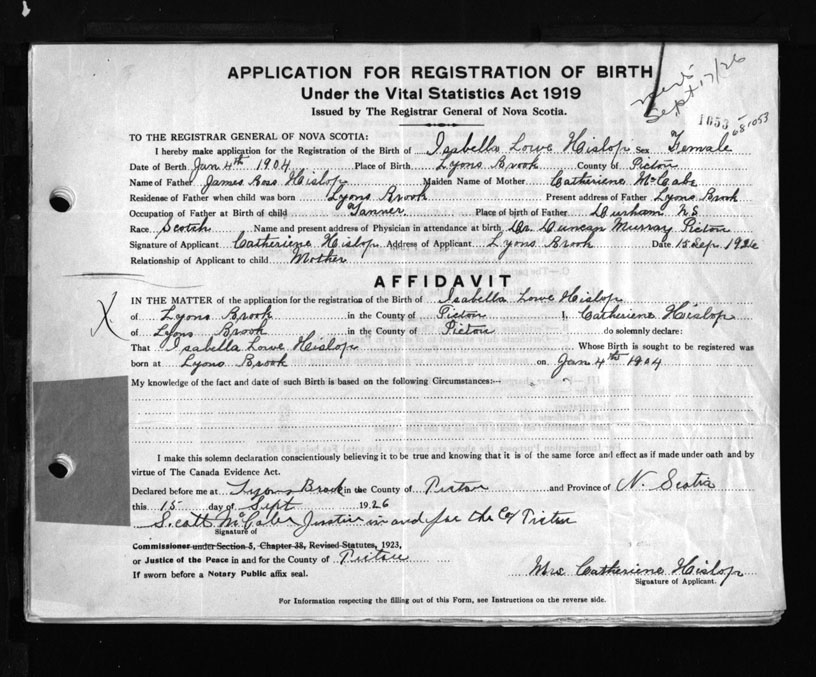 APPLICATION FOR REGISTRATION OF BIRTH
Under the Vital Statistics Act 1919
Issued by The Registrar General of Nova Scotia.
Sept 17/26
1053
681053
TO THE REGISTRAR GENERAL OF NOVA SCOTIA:
I hereby make application for the Registration of the Birth of Isabella Lowe Hislop Sex Female
Date of Birth Jan 4th 1904 Place of Birth Lyons Brook County of Pictou
Name of Father James Ross Hislop Maiden Name of Mother Catheriene McCabe
Residense of Father when child was born Lyons Brook Present address of Father Lyons Brook
Occupation of Father at Birth of child Tanner Place of birth of Father Durham N.S
Race Scotch Name and present address of Physician in attendance at birth Dr. Duncan Murray Pictou
Signature of Applicant Catheriene Hislop Address of Applicant Lyons Brook Date 15 Sep. 1926
Relationship of Applicant to child Mother
AFFIDAVIT
IN THE MATTER of the application for the registration of the Birth of Isabella Lowe Hislop
of Lyons Brook in the County of Pictou I, Catheriene Hislop
of Lyons Brook in the County of Pictou do solemnly declare:
That Isabella Lowe Hislop Whose Birth is sought to be registered was
born at Lyons Brook on Jan 4th 1904
My knowledge of the fact and date of such Birth is based on the following Circumstances:--
I make this solemn declaration conscientiously believing it to be true and knowing that it is of the same force and effect as if made under oath and by
virtue of The Canada Evidence Act.
Declared before me at Lyons Brook in the County of Pictou and Province of N. Scotia
this 15 day of Sept 1926
Scott McCabe Justice in and for the Co Pictou
Signature of
Commissioner under Section 5, Chapter 38, Revised Statutes, 1923,
or Justice of the Peace in and for the County of Pictou
If sworn before a Notary Public affix seal.
Mrs Catheriene Hislop
Signature of Applicant.
For Information respecting the filling out of this Form, see Instructions on the reverse side.